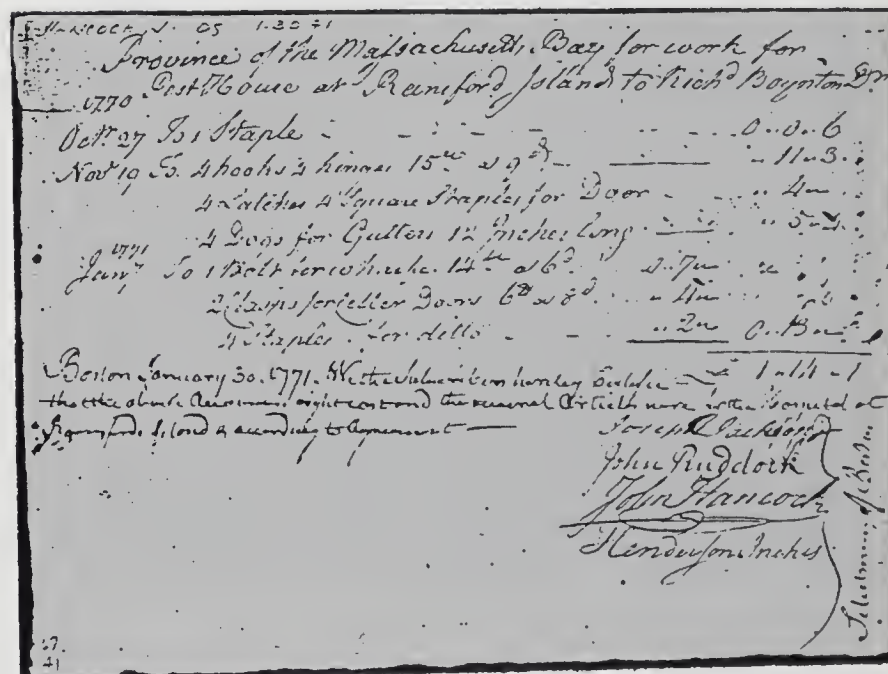 Hancock, J. DS 1.30.71
Province of the Massachusetts Bay for work for
Pest House at Rainsford Island to Richd Boynton Dr
1770
Octr 27 To 1 Staple 0..0..6
Novr 19 To 4 hooks 4 hinges 15 lb at 9d 11..3
4 Latches 4 Square Staples for Door 4
4 Dogs for Gutters 12 Inches long 5..4
1771
Jany To 1 Bolt for 14 lb at 6d 0..7
2 Hasps for Cellar Doors 6 lb at 8d 4
4 Staples for ditto 2 0..13
£ 1..14..1
Boston January 30. 1771. We the Subscribers hereby Certifie
that the above Account is right cast and the several Articles were for the Hospital at
Rainsford Island & according to Agreement
Joseph Jackson
John Ruddock
John Hancock
Henderson Inches
Selectmen of Boston